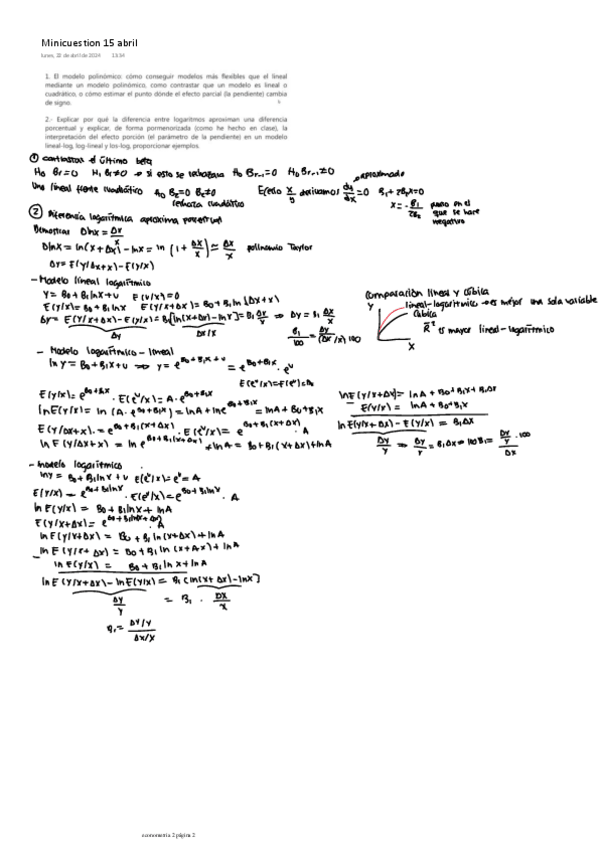 Minicuestion 15 abril
lunes, 22 de abril de 2024 13:34
1. El modelo polinómico: cómo conseguir modelos más flexibles que el lineal
mediante un modelo polinómico, como contrastar que un modelo es lineal o
cuadrático, o cómo estimar el punto dónde el efecto parcial (la pendiente) cambia
de signo.
2.- Explicar por qué la diferencia entre logaritmos aproximan una diferencia
porcentual y explicar, de forma pormenorizada (como he hecho en clase), la
interpretación del efecto porción (el parámetro de la pendiente) en un modelo
lineal-log, log-lineal y los-log, proporcionar ejemplos.
① contrastar el último beta
H0 Br=0 H1 Br≠0 → si esto se rechazara H0 Br-1=0 H0 Br-1≠0
Uno lineal frente cuadrático H0 B2=0 B2≠0
rechaza cuadrático
aproximado
derivamos dy/dx=0 B1+2B2X=0
X=-B1/2B2 punto en el
que se hace
negativo
② Diferencia logarítmica aproxima porcentual
Demostrar Dlnx=Δx/x
Dlnx= ln(x+Δx)-lnx= ln(1+Δx/x)≃Δx/x polinomio Taylor
ΔY= E(Y/Δx+x)-E(Y/x)
- Modelo lineal logarítmico
Y=B0+B1lnX+U E(U/X)=0
E(Y/X)=B0+B1lnx E(Y/X+ΔX)=B0+B1ln(ΔX+x)
ΔY= E(Y/X+ΔX)-E(Y/X)=B1[ln(X+ΔX)-lnX]=B1 Δx/x ⇒ ΔY=B1 Δx/x
ΔY ΔX/X
B1/100=ΔY/(ΔX/X)100
Comparación lineal y cúbica
lineal-logarítmico → es mejor una sola variable
Y
Cúbica
R̄² es mayor lineal-logarítmico
X
- Modelo logarítmico-lineal
lny=B0+B1X+U ⇒ y=e^B0+B1X+U = e^B0+B1X · e^U
E(Y/X)=e^B0+B1X · E(e^U/X)=A·e^B0+B1X
lnE(Y/X)= ln(A·e^B0+B1X)=lnA+lne^B0+B1X=lnA+B0+B1X
E(Y/ΔX+X)=e^B0+B1(X+ΔX)·E(e^U/X)=e^B0+B1(X+ΔX)·A
ln E(Y/ΔX+X)=ln e^B0+B1(X+ΔX)+lnA=B0+B1(X+ΔX)+lnA
lnE(Y/X+ΔX)=lnA+B0+B1X+B1ΔX
- E(Y/X)= lnA+B0+B1X
lnE(Y/X+ΔX)-E(Y/X)=B1ΔX
ΔY/Y ⇒ ΔY/Y=B1ΔX ⇒ 100B1=ΔY/Y·100/ΔX
- Modelo logarítmico
lny=B0+B1lnX+U E(e^U/X)=e^U=A
E(Y/X)=e^B0+B1lnX·E(e^U/X)=e^B0+B1lnX·A
lnE(Y/X)=B0+B1lnX+lnA
E(Y/X+ΔX)=e^B0+B1ln(X+ΔX)·A
lnE(Y/X+ΔX)=B0+B1ln(X+ΔX)+lnA
lnE(Y/X+ΔX)=B0+B1ln(X+ΔX)+lnA
- lnE(Y/X)= B0+B1lnX+lnA
lnE(Y/X+ΔX)-lnE(Y/X)=B1[ln(X+ΔX)-lnX]
ΔY/Y = B1 · ΔX/X
B1=ΔY/Y/ΔX/X
econometría 2 página 2